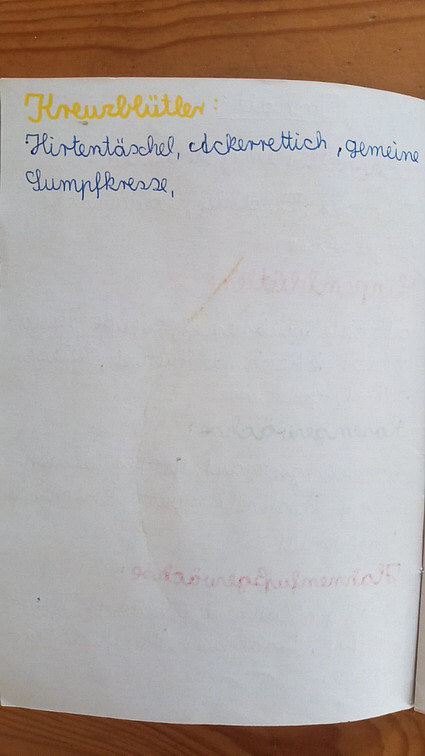 Kreuzblütler:
Hirtentäschel, Ackerrettich, gemeine
Sumpfkresse,
Hahnenfußgewächse